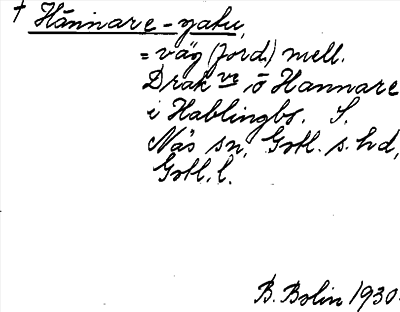 † Hännare-gatu,
= väg (förd.) mell.
Drak o Hannare
i Hablingbo. S.
Näs sn, Gotl. s. hd,
Gotl. l.
B. Bolin 1930.